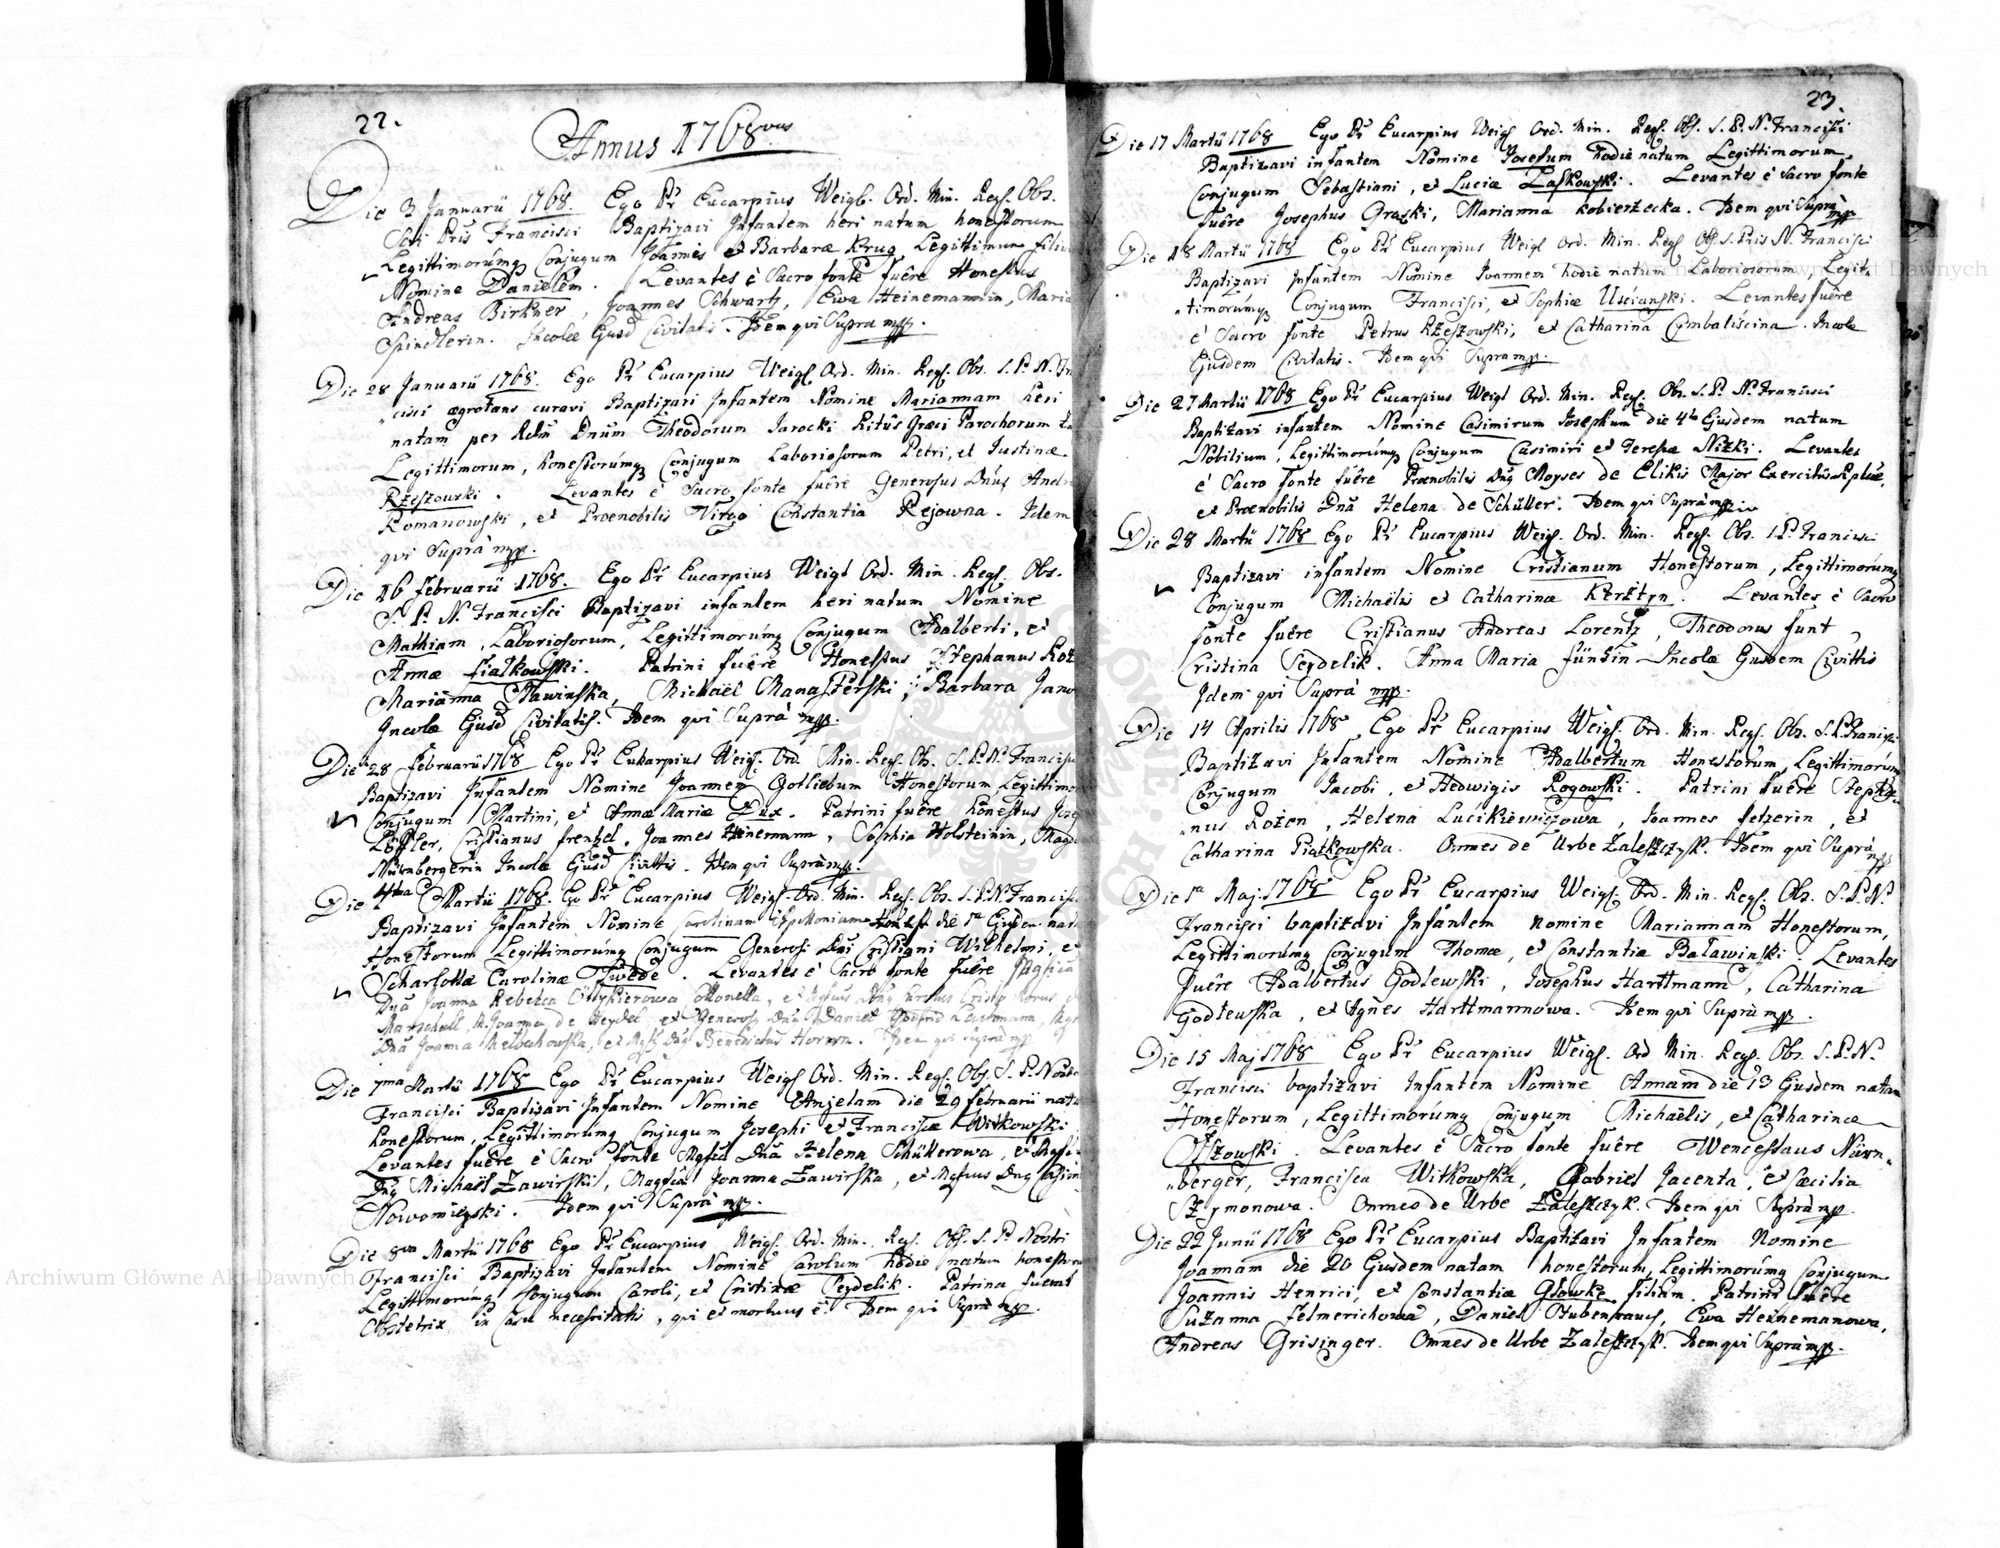 22.
Annus 1768vus
Die 3 Januarii 1768. Ego Pr Eucarpius Weigl. Ord. Min. Regl. Obs.
Sti Pris Francisci Baptizavi Infantem heri natum honestorum
Legittimorumq Conjugum Joannis et Barbaræ Krug Legittimum filium
Nomine Danielem. Levantes è Sacro fonte fuêre Honestus
Andreas Birkner, Joannes Schwartz, Ewa Heinemannin, Maria
Spindlerin. Incolæ Ejusd Civitatis. Idem qui Supra mpp.
Die 28 Januarii 1768. Ego Pr Eucarpius Weigl Ord. Min. Regl. Obs. S. P. N. Fran
cisci ægrotans curavi Baptizari Infantem Nomine Mariannam heri
natam per Rdm Dnum Theodorum Jarocki Ritûs Græci Parochorum
Legittimorum, honestorúmq Conjugum Laboriosorum Petri, et Justinæ
Rzeszowski. Levantes è Sacro fonte fuêre Generosus Dnus
Romanowski, et Prænobilis Virgo Constantia Rejowna. Idem
qui Suprà mpp.
Die 16 Februarii 1768. Ego Pr Eucarpius Weigl Ord. Min. Regl. Obs.
S. P. N. Francisci Baptizavi infantem heri natum Nomine
Mathiam, Laboriosorum, Legittimorúmq Conjugum Adalberti, et
Annæ Fialkowski. Patrini fuêre Honestus Stephanus
Marianna Slawinska, Michaël Manasterski, Barbara
Incolæ Ejusd Civitatis. Idem qui Suprà mpp.
Die 28 Februarii 1768 Ego Pr Eukarpius Weigl. Ord. Min. Regl. Obs. S. P. N. Francisci
Baptizavi Infantem Nomine Joannem Gotliebum Honestorum, Legittimo
Conjugum Martini, et Annæ Mariæ Dux. Patrini fuêre honestus
Löffler, Cristianus frenkel, Joannes Heinemann, Sophia Holsteinin,
Nürnbergerin Incolæ Ejusd Civittis. Idem qui Suprà mpp.
Die 4ta Martii 1768. Ego Pr Eucarpius Weigl. Ord. Min. Regl. Obs. S. P. N. Francisci
Baptizavi Infantem Nomine Carolinam die 1a Ejusdem
Honestorum Legittimorúmq Conjugum Generosi Dni Cristiani Wilhelmi, et
Scharlottæ Carolinæ Twede. Levantes è Sacro fonte fuêre
Dna Joanna Rebecca
Marschall, Joanna de Heydel et Generosq Dnq Daniel
Dnã Joanna et Dnq Benedictus Idem qui Suprà mpp
Die 7ma Martii 1768 Ego Pr Eucarpius Weigl Ord. Min. Regl. Obs. S. P. Nostri
Francisci Baptizavi Infantem Nomine Anjelam die 29 februarii
honestorum, Legittimorúmq Conjugum Josephi et Franciscæ Witkowski
Levantes fuêre è Sacro fonte Mgfca Dnã Helena Schüllerowa, et
Dnq Michaël Zawirski, Magfca Joanna Zawirska, et Mgfcus Dnq
Nowomieyski. Idem qui Suprà mpp.
Die 8va Martii 1768 Ego Pr Eucarpius Weigl. Ord. Min. Regl. Obs. S. P. Nostri
Francisci Baptizavi Infantem Nomine Carolum hodie natum
Legittimorúmq Conjugum Caroli, et Cristinæ Seydelik. Patrina fuerat
Obstetrix in Casu necessitatis, qui et mortuus è. Idem qui Suprà mpp.
23.
Die 17 Martii 1768 Ego Pr Eucarpius Weigl Ord. Min. Regl. Obs. S. P. N. Francisci
Baptizavi infantem Nomine Josefum hodie natum Legittimorum
Conjugum Sebastiani, et Luciæ Laskowski. Levantes è Sacro fonte
fuêre Josephus Grazki, Marianna Kobierzecka. Idem qui Suprà mpp
Die 18 Martii 1768 Ego Pr Eucarpius Weigl Ord. Min. Regl Obs. S. Pris N. Francisci
Baptizavi Infantem Nomine Joannem hodie natum Laboriosorum Legit-
timorúmq Conjugum Francisci, et Sophiæ Uscianski. Levantes fuêre
è Sacro fonte Petrus Rzeszowski, et Catharina Cymbaliscina. Incolæ
Ejusdem Civitatis. Idem qui Supra mpp.
Die 27 Martii 1768 Ego Pr Eucarpius Weigl Ord. Min. Regl. Obs. S. P. N. Francisci
Baptizavi infantem Nomine Casimirum Josephum die 4ta Ejusdem natum
Nobilium, Legittimorúmq Conjugum Casimiri et Teresæ Nizki. Levantes
è Sacro fonte fuêre Prænobilis Dnq Moyses de Elikis Major Exercitûs
et Prænobilis Dnã Helena de Schüller. Idem qui Suprà mpp
Die 28 Martii 1768 Ego Pr Eucarpius Weigl. Ord. Min. Regl. Obs. S. P. Francisci
Baptizavi infantem Nomine Cristianum Honestorum, Legittimorúmq
Conjugum Michaëlis et Catharinæ Kerztyn. Levantes è Sacro
fonte fuêre Cristianus Andreas Lorentz, Theodorus funt
Cristina Seydelik. Anna Maria fünkin Incolæ Ejusdem Civittis
Idem qui Suprà mpp.
Die 14 Aprilis 1768 Ego Pr Eucarpius Weigl. Ord. Min. Regl. Obs. S. P. Francisci
Baptizavi Infantem Nomine Adalbertum Honestorum, Legittimorum
Conjugum Jacobi, et Hedwigis Rogowski. Patrini fuêre Stepha-
nus Rożen, Helena Lucikiewiczowa, Joannes fetzerin, et
Catharina Piatkowska. Omnes de Urbe Zaleszczyk. Idem qui Suprà mpp
Die 1a Maj 1768 Ego Pr Eucarpius Weigl. Ord. Min. Regl. Obs. S. P. N.
Francisci baptizavi Infantem nomine Mariannam Honestorum,
Legittimorúmq Conjugum Thomæ, et Constantiæ Balawinski. Levantes
fuêre Adalbertus Godlewski, Josephus Harttmann, Catharina
Godlewska, et Agnes Harttmannowa. Idem qui Suprà mpp.
Die 15 Maj 1768 Ego Pr Eucarpius Weigl. Ord Min. Regl. Obs. S. P. N.
Francisci baptizavi Infantem Nomine Annam die 13 Ejusdem natam
Honestorum, Legittimorúmq Conjugum Michaëlis, et Catharinæ
Olszowski. Levantes è Sacro fonte fuêre Wenceslaus Nürn-
berger, Francisca Witkowska, Gabriel Jacenta, et Cæcilia
Szymonowa. Omnes de Urbe Zaleszczyk. Idem qui Suprà mpp.
Die 22 Junii 1768 Ego Pr Eucarpius Baptizavi Infantem Nomine
Joannam die 20 Ejusdem natam honestorum, Legittimorúmq Conjugum
Joannis Henrici, et Constantiæ Glowke filiam. Patrini fuêre
Suzanna Felmerichowa, Daniel Stubenrauch, Ewa Heinemanowa,
Andreas Grisinger. Omnes de Urbe Zaleszczyk. Idem qui Suprà mpp.
Archiwum Główne Akt Dawnych
Archiwum Główne Akt Dawnych